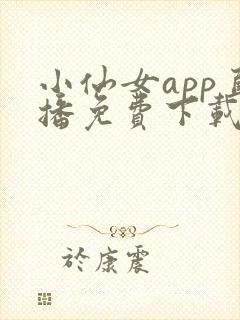 小仙女app
播免費下載
於康震